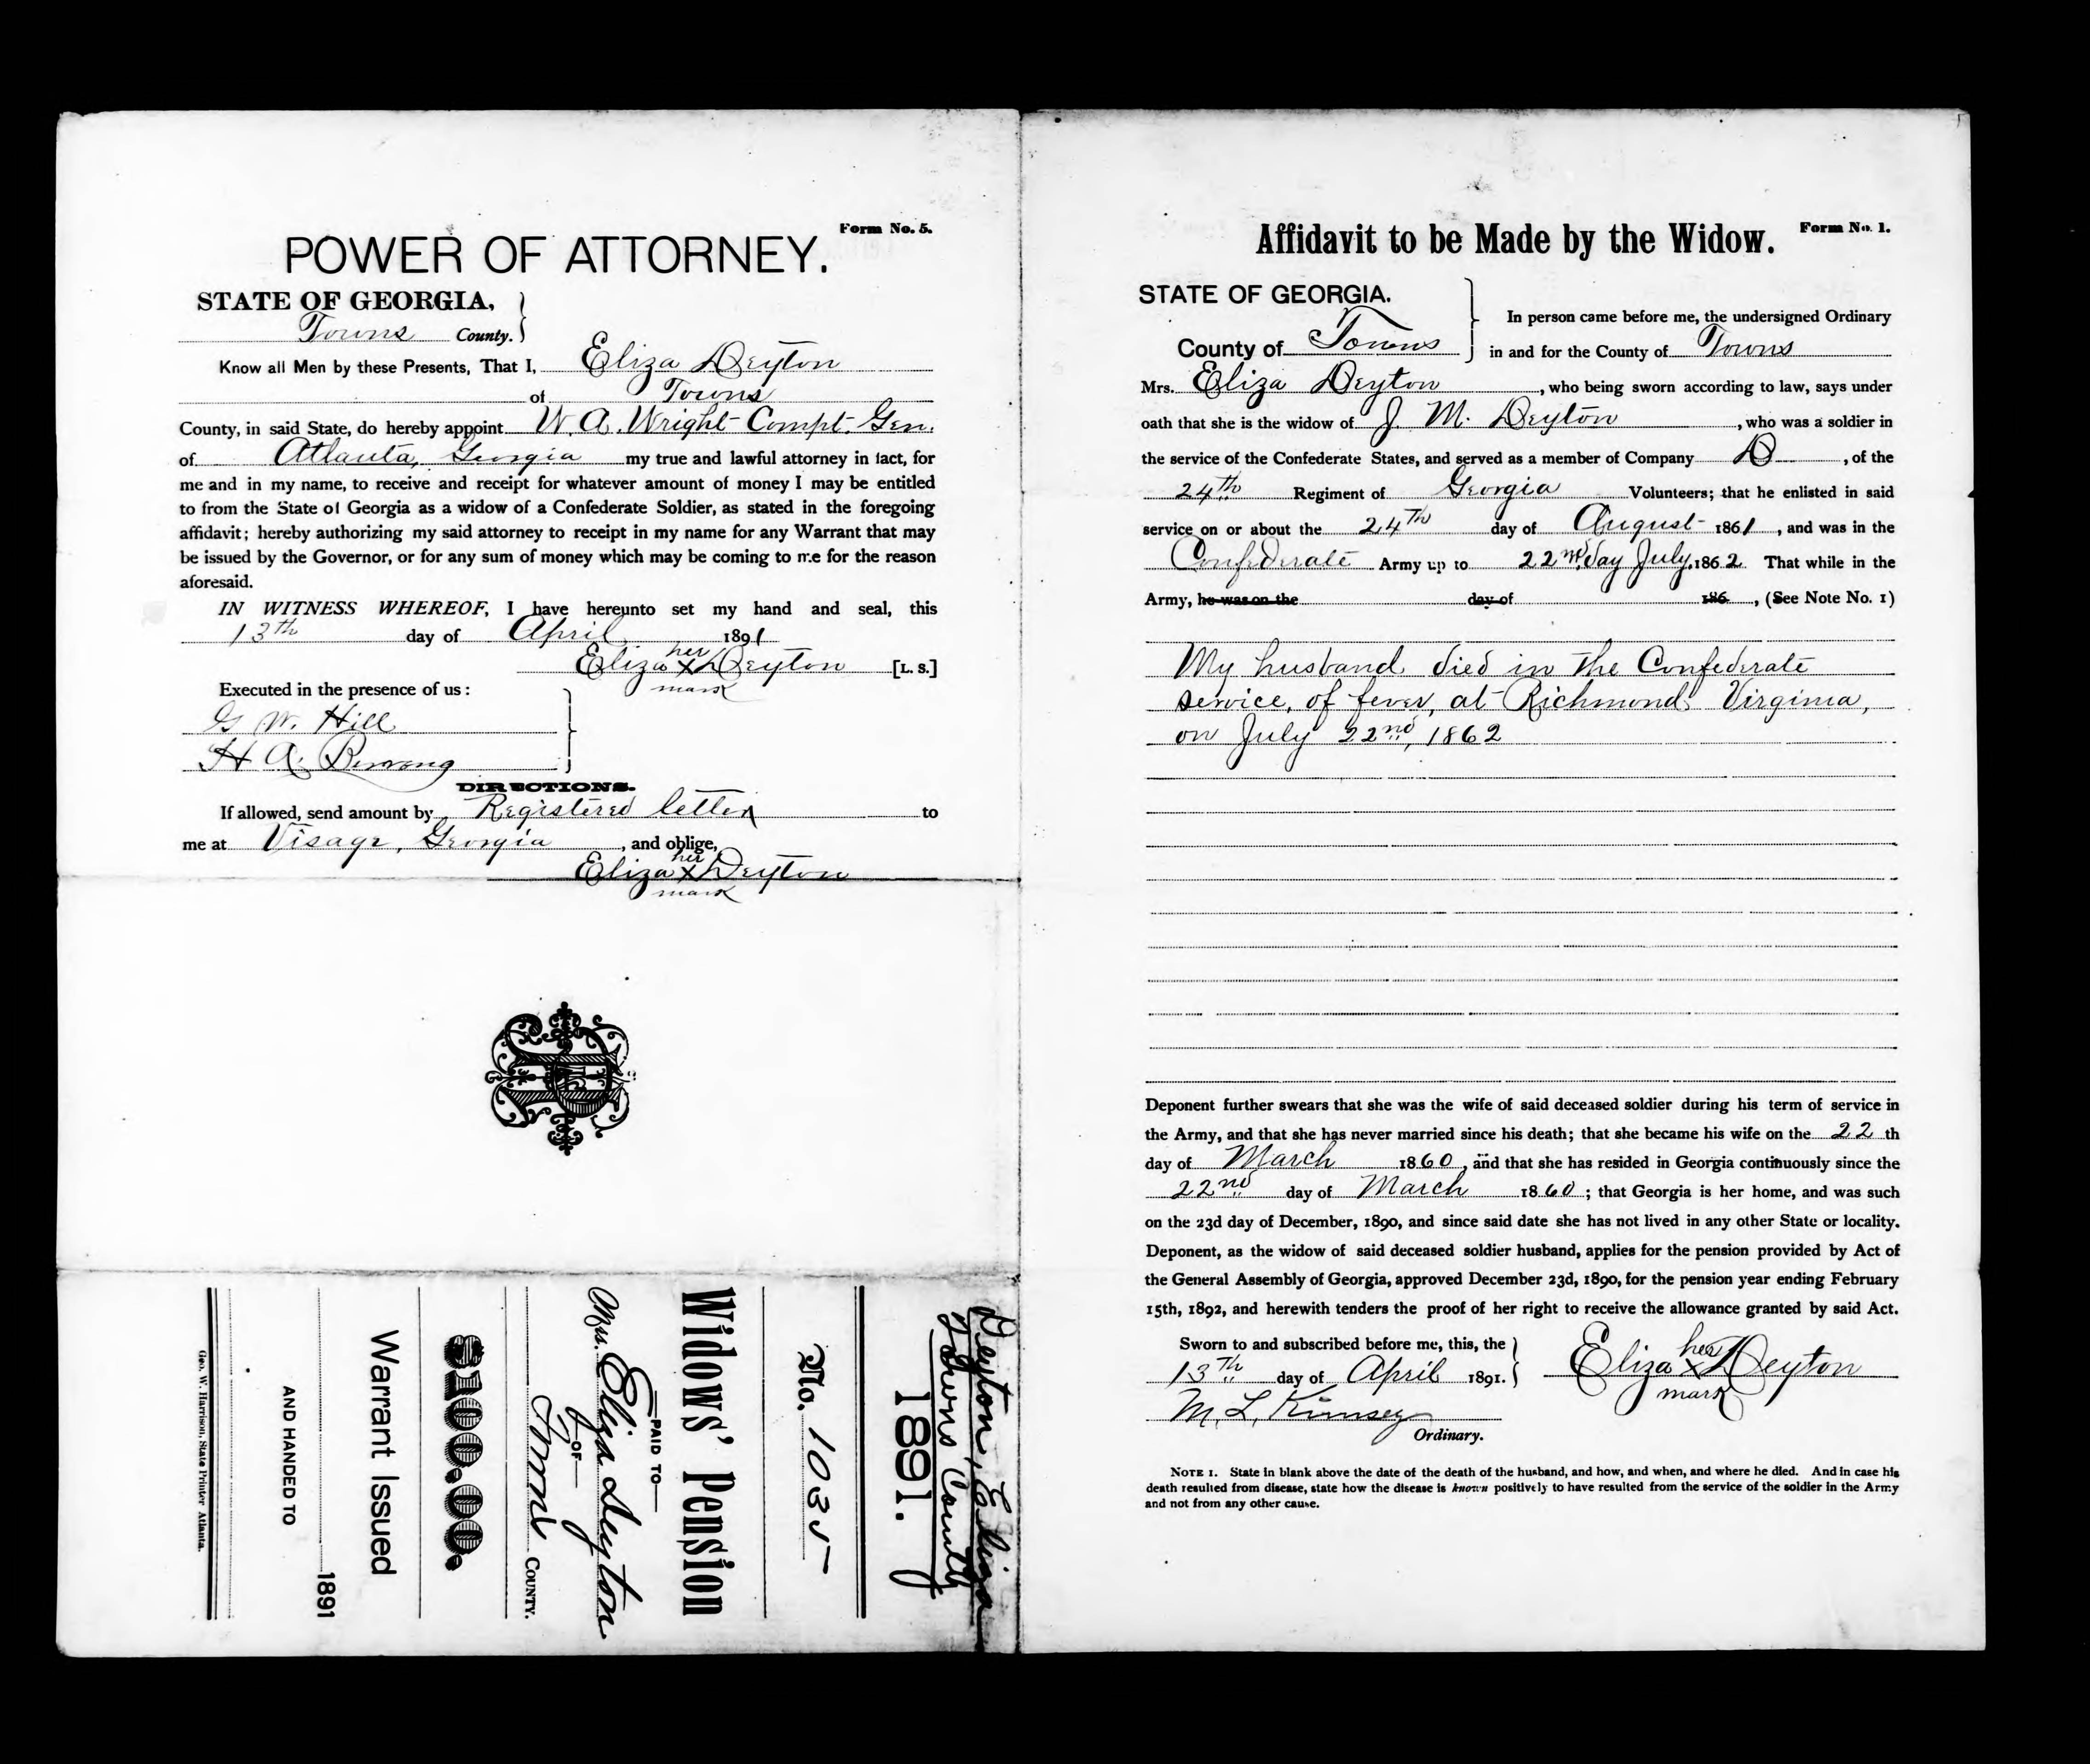 Form No. 5.
POWER OF ATTORNEY.
STATE OF GEORGIA,
Towns County.
Know all Men by these Presents, That I, Eliza Deyton
of Towns
County, in said State, do hereby appoint W. A. Wright Compt. Gen.
of Atlanta, Georgia my true and lawful attorney in fact, for
me and in my name, to receive and receipt for whatever amount of money I may be entitled
to from the State of Georgia as a widow of a Confederate Soldier, as stated in the foregoing
affidavit; hereby authorizing my said attorney to receipt in my name for any Warrant that may
be issued by the Governor, or for any sum of money which may be coming to me for the reason
aforesaid.
IN WITNESS WHEREOF, I have hereunto set my hand and seal, this
13th day of April 1891
her
Eliza X Deyton [L. S.]
mark
Executed in the presence of us:
G W. Hill
H A.
DIRECTIONS.
If allowed, send amount by Registered letter to
me at Visage, Georgia, and oblige,
her
Eliza X Deyton
mark
Deyton, Eliza
Towns County
1891.
No. 1035
Widows' Pension
PAID TO
Mrs. Eliza Deyton
OF
Towns COUNTY.
$100.00.
Warrant Issued
1891
AND HANDED TO
Geo. W. Harrison, State Printer Atlanta.
Form No. 1.
Affidavit to be Made by the Widow.
STATE OF GEORGIA.
County of Towns
In person came before me, the undersigned Ordinary
in and for the County of Towns
Mrs. Eliza Deyton, who being sworn according to law, says under
oath that she is the widow of J. M. Deyton, who was a soldier in
the service of the Confederate States, and served as a member of Company D, of the
24th Regiment of Georgia Volunteers; that he enlisted in said
service on or about the 24th day of August 1861, and was in the
Confederate Army up to 22nd day July. 1862 That while in the
Army, he was on the day of 186, (See Note No. 1)
My husband died in the Confederate
service, of fever, at Richmond Virginia,
on July 22nd, 1862
Deponent further swears that she was the wife of said deceased soldier during his term of service in
the Army, and that she has never married since his death; that she became his wife on the 22 th
day of March 1860, and that she has resided in Georgia continuously since the
22nd day of March 1860; that Georgia is her home, and was such
on the 23d day of December, 1890, and since said date she has not lived in any other State or locality.
Deponent, as the widow of said deceased soldier husband, applies for the pension provided by Act of
the General Assembly of Georgia, approved December 23d, 1890, for the pension year ending February
15th, 1892, and herewith tenders the proof of her right to receive the allowance granted by said Act.
Sworn to and subscribed before me, this, the
13th day of April 1891.
her
Eliza X Deyton
mark
M. L. Kimsey
Ordinary.
NOTE 1. State in blank above the date of the death of the husband, and how, and when, and where he died. And in case his
death resulted from disease, state how the disease is known positively to have resulted from the service of the soldier in the Army
and not from any other cause.